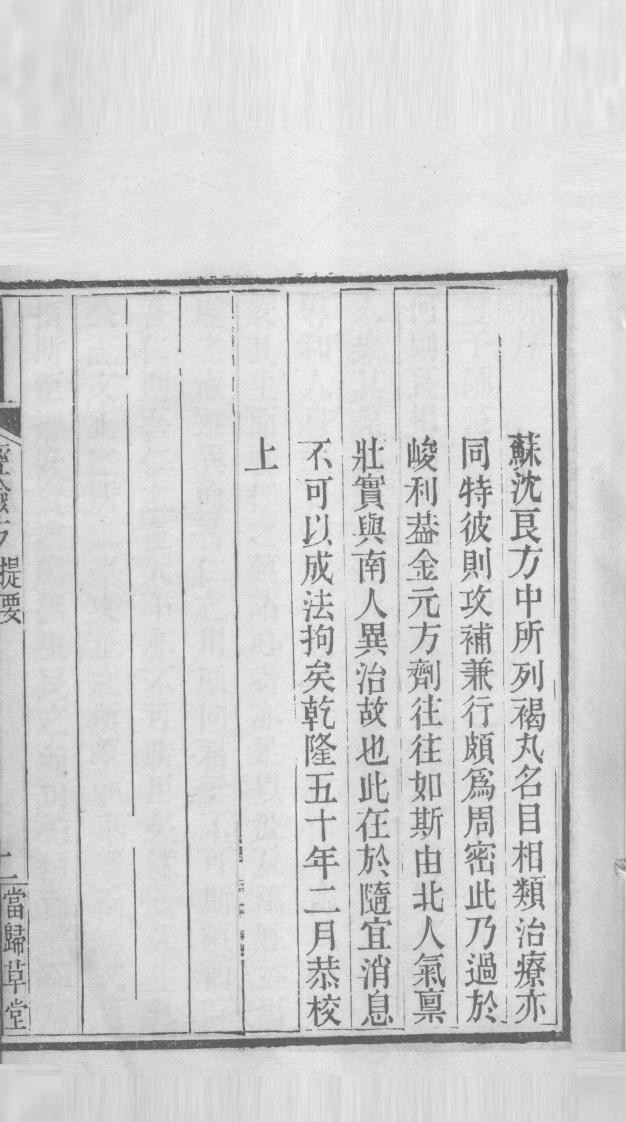 蘇沈良方中所列褐丸名目相類治療亦
同特彼則攻補兼行頗爲周密此乃過於
峻利葢金元方劑往往如斯由北人氣禀
壯實與南人異治故也此在於隨宜消息
不可以成法拘矣乾隆五十年二月恭校
上
經驗方 提要 二 當歸草堂